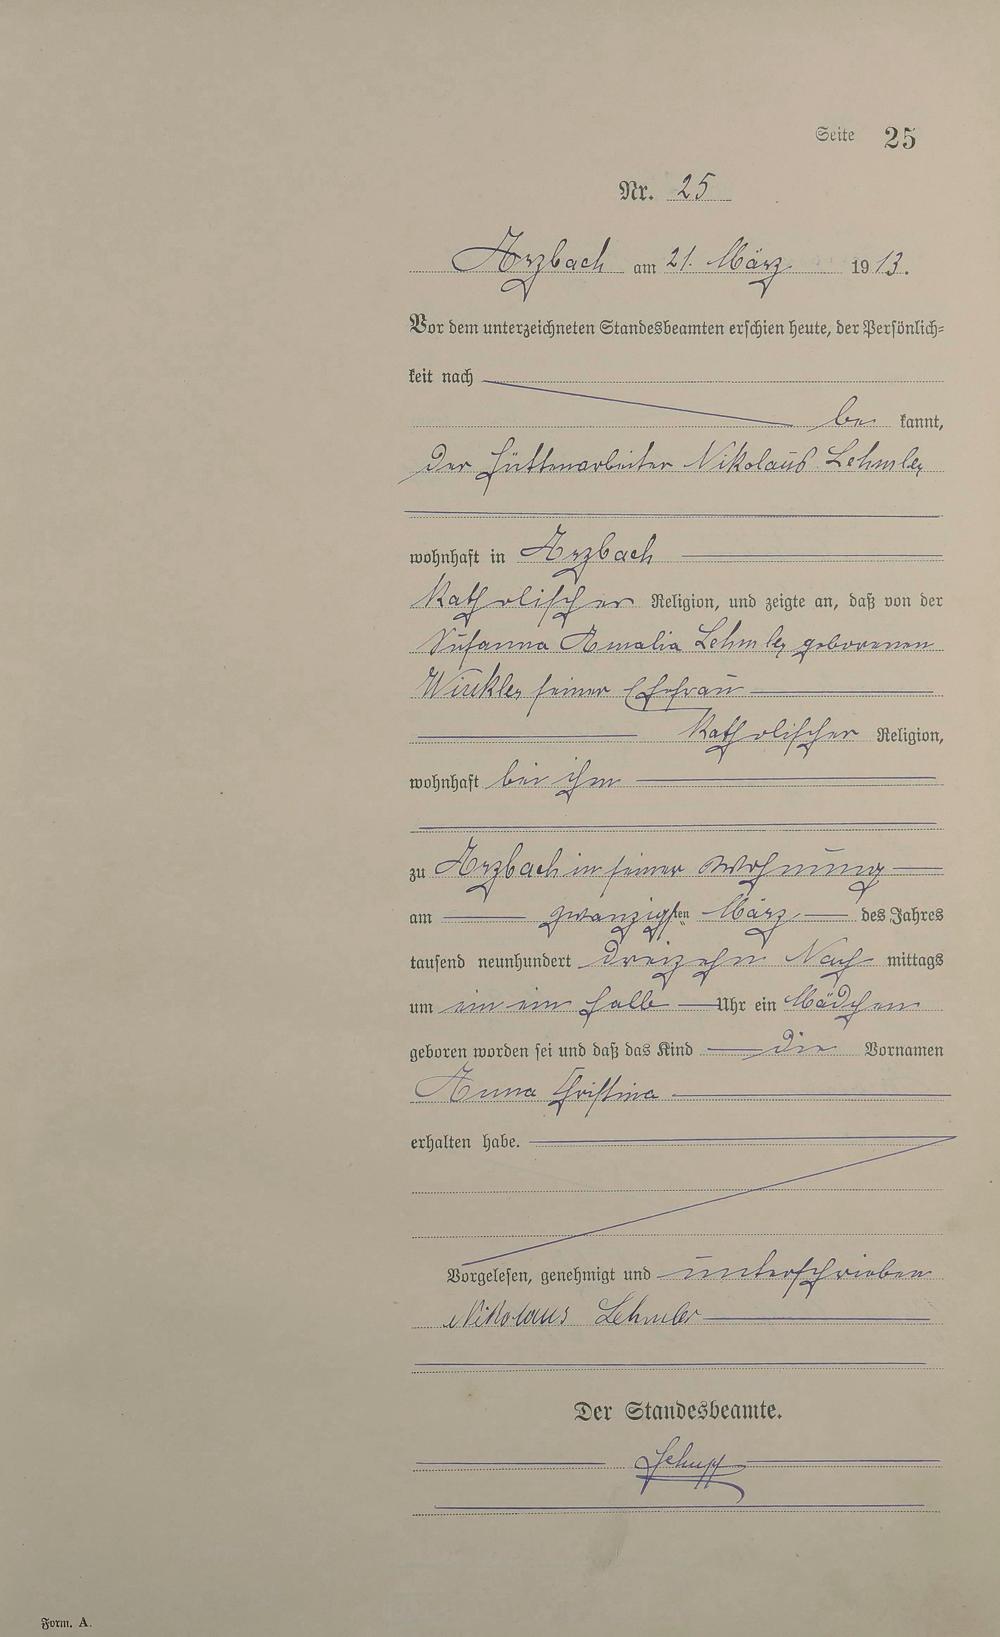 Seite 25
Nr. 25
Arzbach am 21. März 1913.
Vor dem unterzeichneten Standesbeamten erschien heute, der Persönlich=
keit nach
be kannt,
der Hüttenarbeiter Nikolaus Lehmler
wohnhaft in Arzbach
katholischer Religion, und zeigte an, daß von der
Susanna Amalia Lehmler geborenen
Winkler seiner Ehefrau
katholischer Religion,
wohnhaft bei ihm
zu Arzbach in seiner Wohnung
am zwanzigsten März des Jahres
tausend neunhundert dreizehn Nach mittags
um ein ein halb Uhr ein Mädchen
geboren worden sei und daß das Kind die Vornamen
Anna Christina
erhalten habe.
Vorgelesen, genehmigt und unterschrieben
Nikolaus Lehmler
Der Standesbeamte.
Form. A.